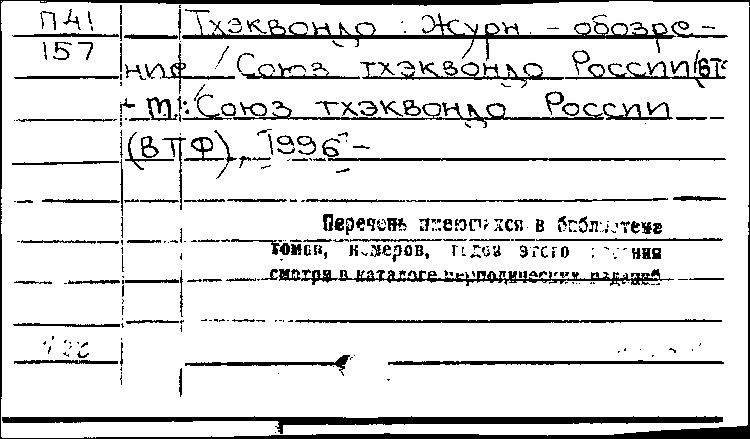 П41 Тхэквондо : Журн. - обозре-
157 ние / Союз тхэквондо России (ВТ
- М.: Союз тхэквондо России
(ВТФ), 1996 -
Перечень имеющихся в библиотеке
томов, номеров, годов этого издания
смотри в каталоге периодических изданий